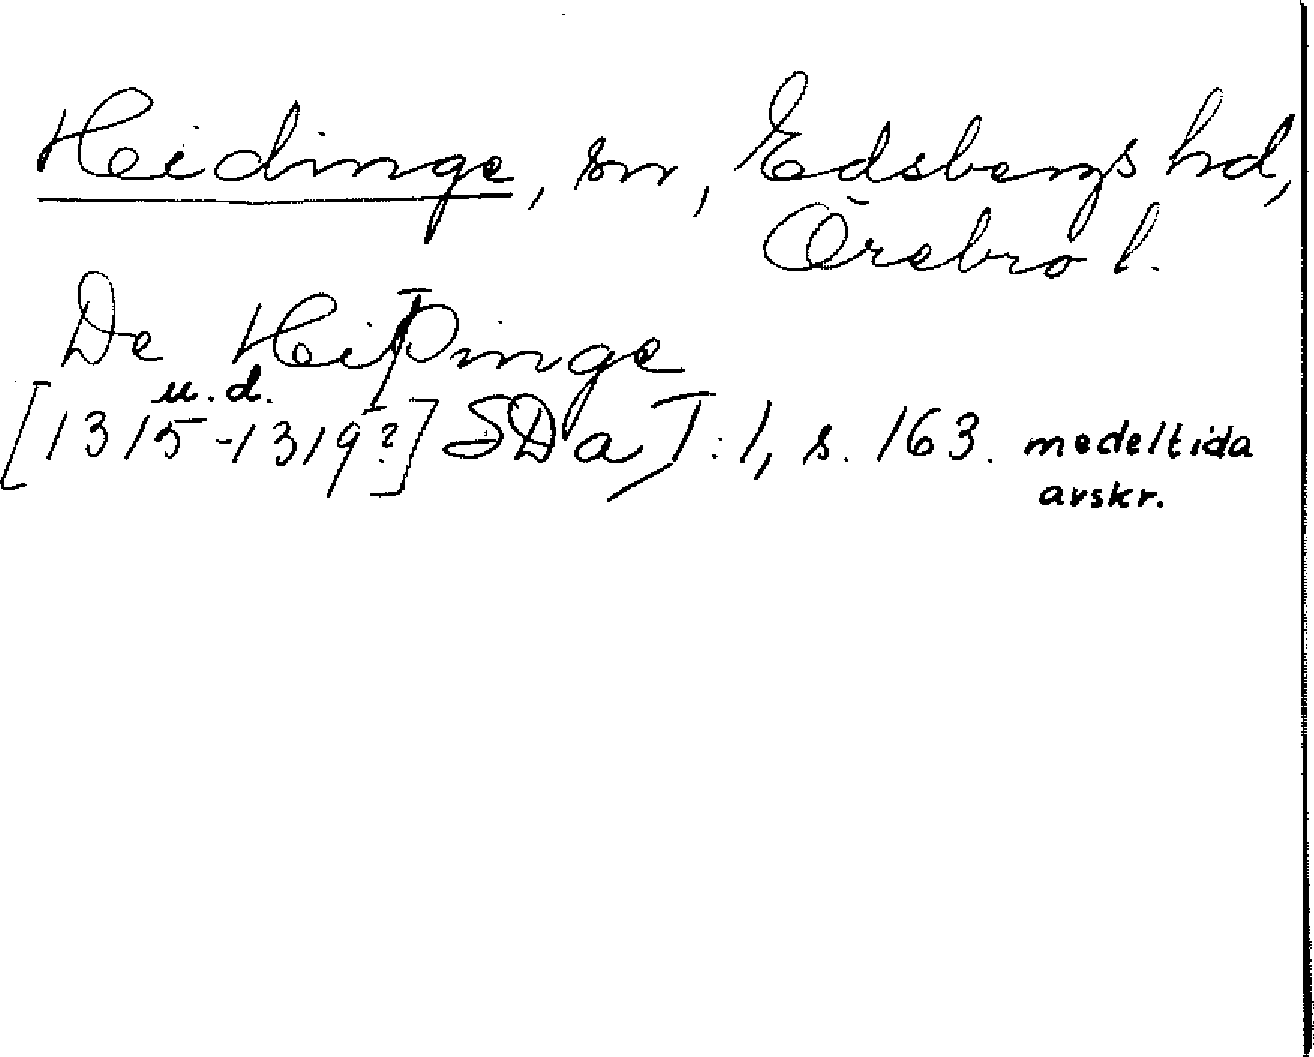 Heidinge, sn, Edsbergs hd,
Örebro l.
De Heiþinge
u.d.
[1315-1319?] SDa I:1, s. 163. medeltida
avskr.